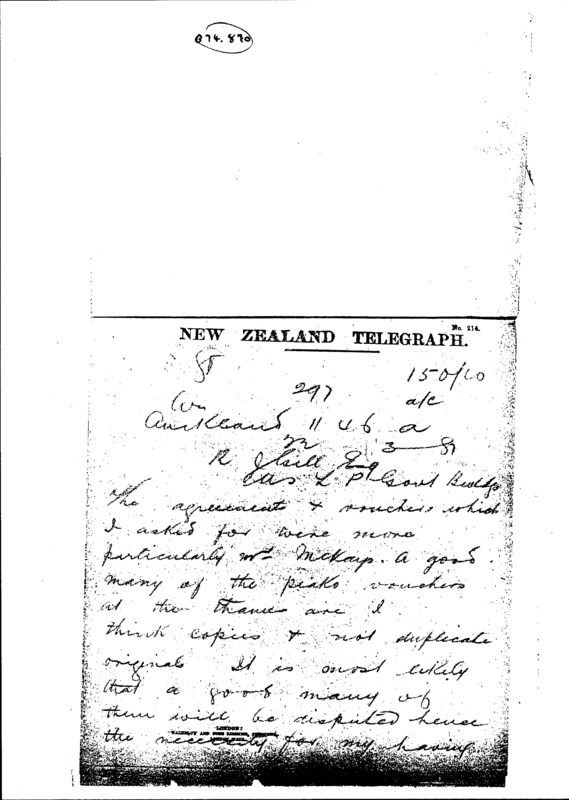 974.890
No. 214.
NEW ZEALAND TELEGRAPH.
ST
297 150/10
a/c
Auckland 11 46 a
22 3 81
R J Gill Esq
L P Govt Buildgs
The agreements & vouchers which
I asked for were more
particularly Mr McKays. A good
many of the piako vouchers
at the thames are I
think copies & not duplicate
originals It is most likely
that a good many of
them will be disputed hence
LONDON:
the necessity for my having